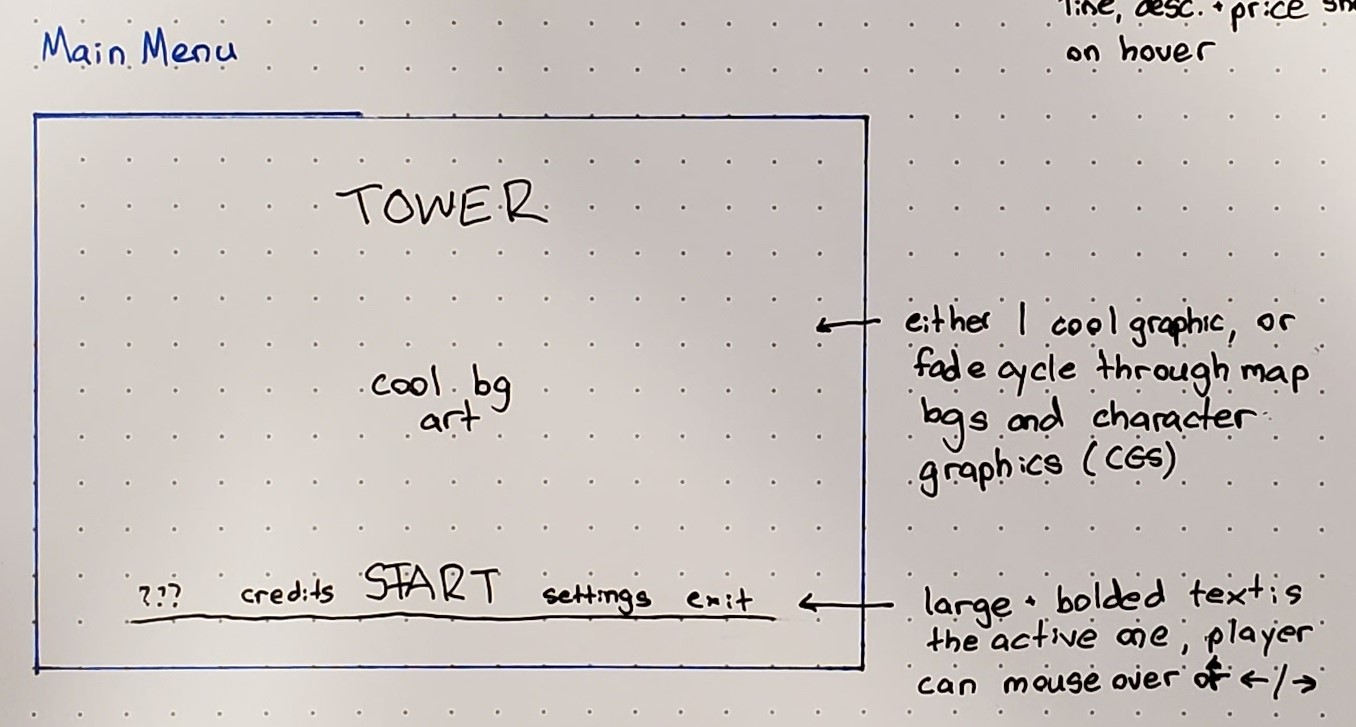 line, desc. + price
on hover
Main Menu
TOWER
cool bg
art
either 1 cool graphic, or
fade cycle through map
bgs and character
graphics (CGS)
??? credits START settings exit
large + bolded text is
the active one, player
can mouse over or ←/→